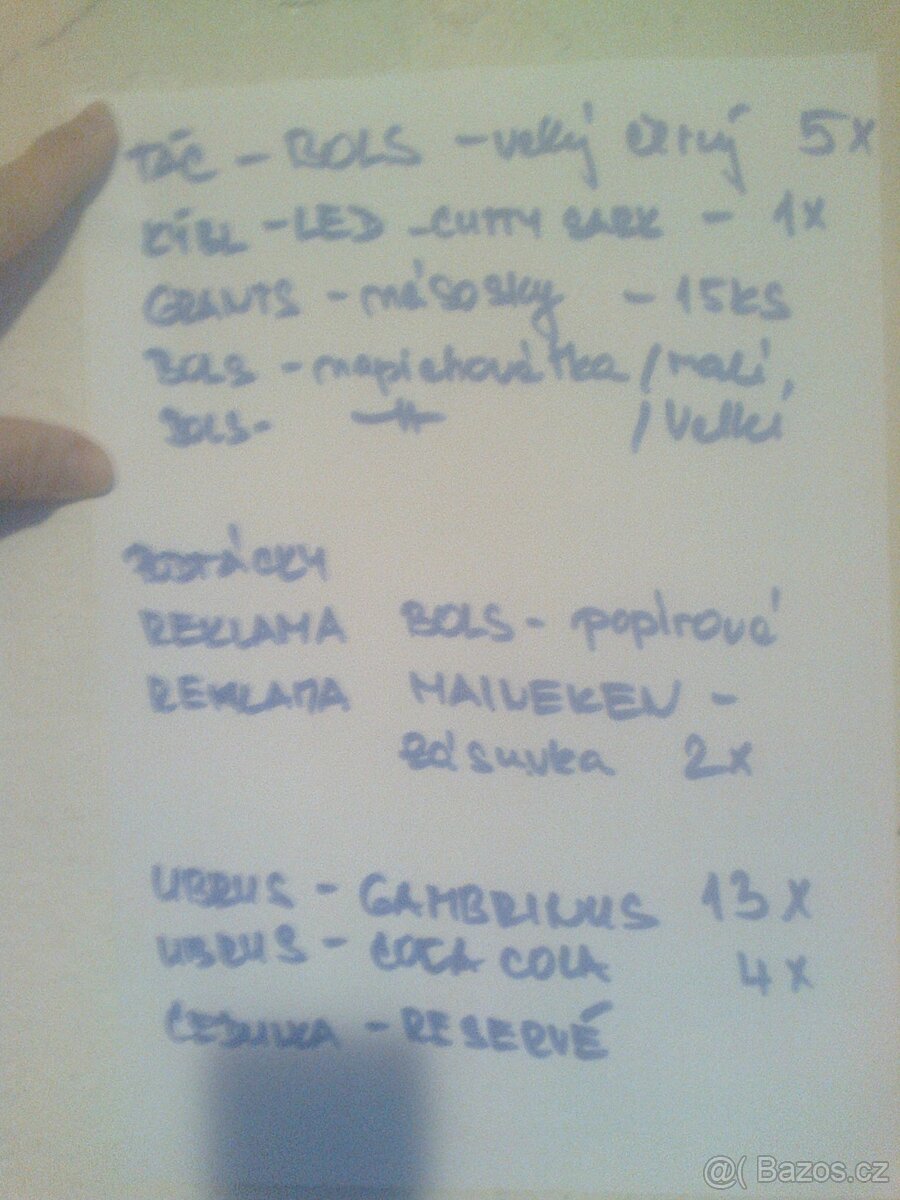 TÁC - BOLS - velký černý 5x
KÝBL - LED - CUTTY SARK - 1x
GRANTS - násosky - 15KS
BOLS - napichovátka / malí,
BOLS - -||- / velkí
PODTÁCKY
REKLAMA BOLS - papírová
REKLAMA HAINEKEN -
zásuvka 2x
UBRUS - GAMBRINUS 13x
UBRUS - COCA COLA 4x
CEDULKA - RESERVÉ
@( Bazos.cz